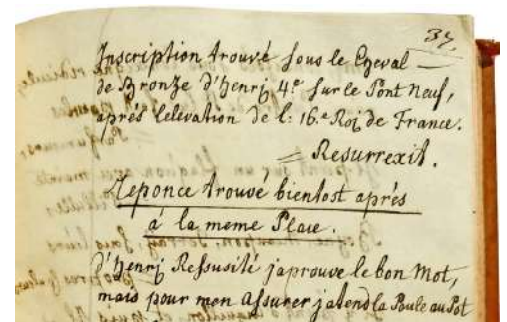 37,
Inscription trouvé sous le Cheval —
de Bronze d'henri 4.e sur le Pont neuf,
aprés l'elevation de l: 16.e Roi de France.
= Resurrexit.
Reponce trouvé bientost aprés
à la meme Place.
d'henri Ressusité j'aprouve le bon Mot,
mais pour m'en assurer j'atend la Poule au Pot